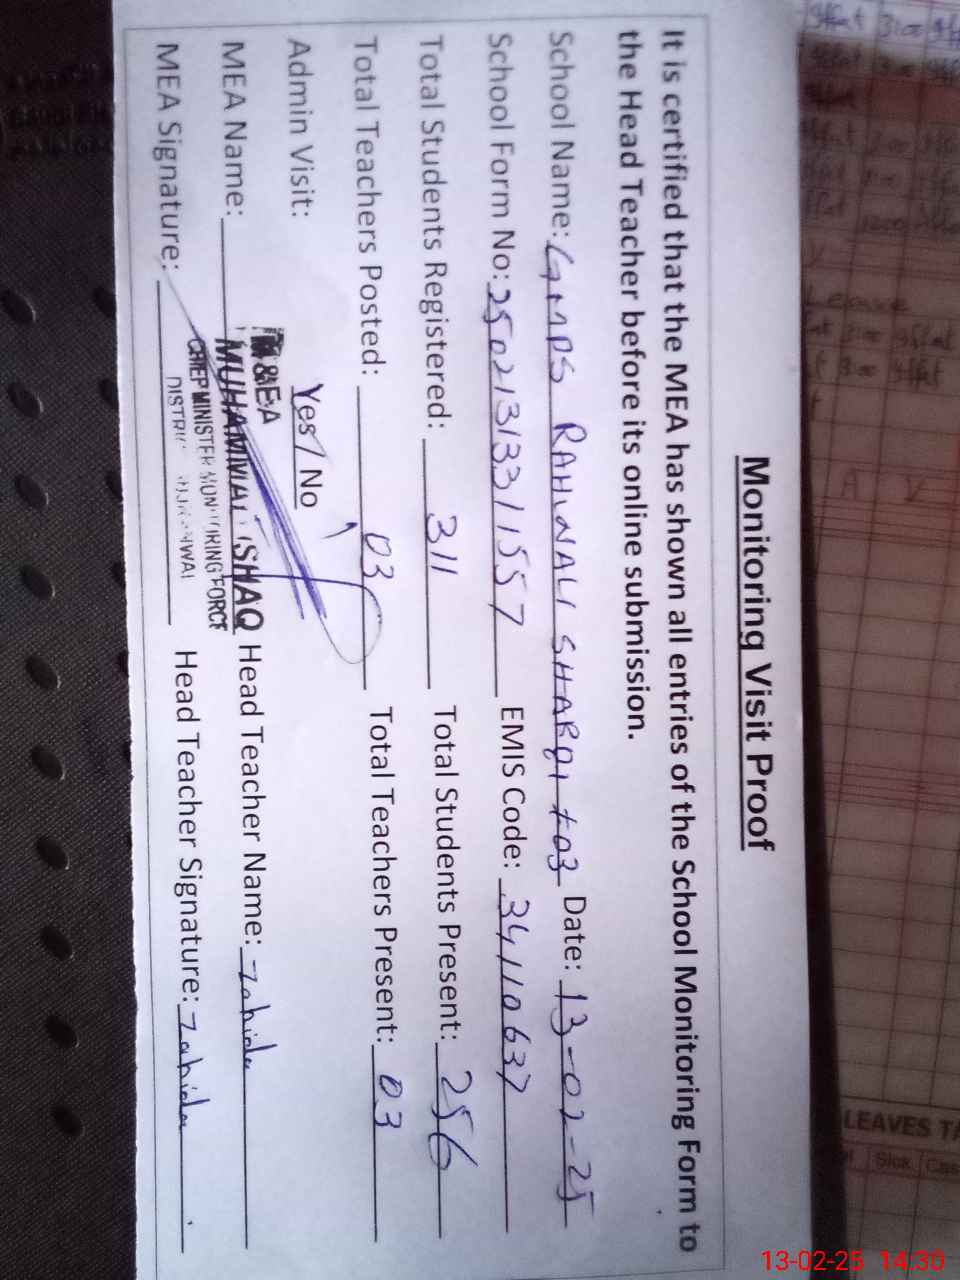 Monitoring Visit Proof
It is certified that the MEA has shown all entries of the School Monitoring Form to
the Head Teacher before its online submission.
School Name: GMPS RAHWALI SHARQI +03 Date: 13-02-25
School Form No: 2502131331157 EMIS Code: 34110637
Total Students Registered: 311 Total Students Present: 256
Total Teachers Posted: 03 Total Teachers Present: 03
Admin Visit: Yes / No
M&EA
MEA Name: MUHAMMAD ISHAQ Head Teacher Name: Zahida
CHIEF MINISTER MONITORING FORCE
MEA Signature: Head Teacher Signature: Zahida
DISTRICT
Leave
LEAVES TA
Sick Cas
13-02-25 14:30